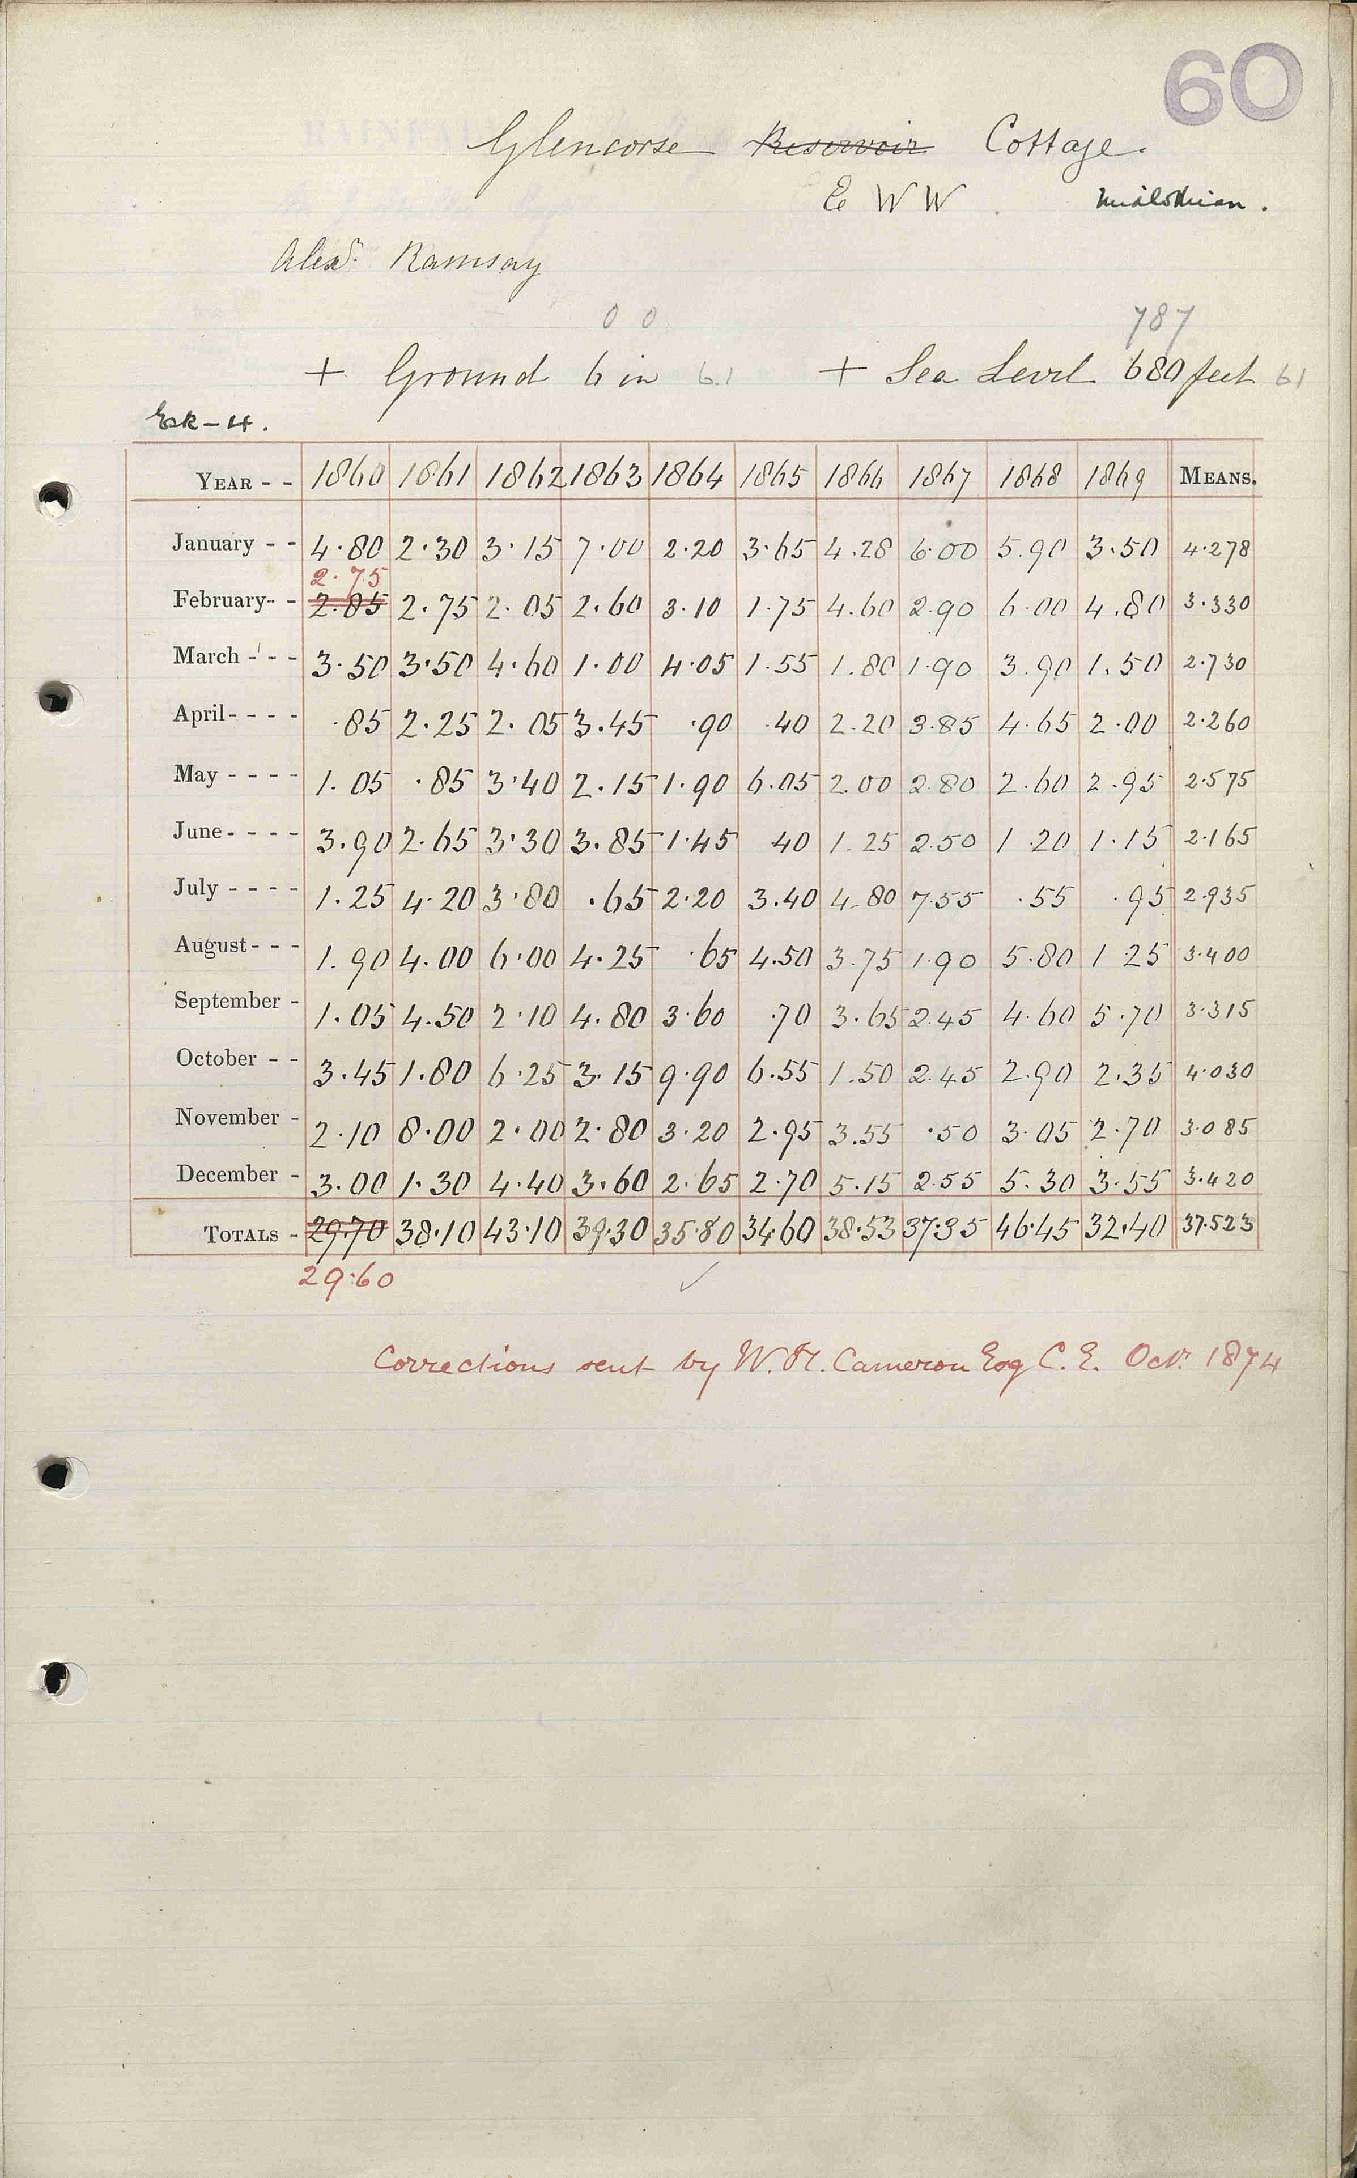 60
Glencorse Reservoir Cottage.
E W W Midlothian.
Alexr. Ramsay
0 0 787
+ Ground 6 in 61 + Sea Level 680 feet 61
Esk - 4.
YEAR - - 1860 1861 1862 1863 1864 1865 1866 1867 1868 1869 MEANS.
January - - 4.80 2.30 3.15 7.00 2.20 3.65 4.28 6.00 5.90 3.50 4.278
2.75
February - - 2.85 2.75 2.05 2.60 3.10 1.75 4.60 2.90 6.00 4.80 3.330
March - - - 3.50 3.50 4.60 1.00 4.05 1.55 1.80 1.90 3.90 1.50 2.730
April - - - - .85 2.25 2.05 3.45 .90 .40 2.20 3.85 4.65 2.00 2.260
May - - - - 1.05 .85 3.40 2.15 1.90 6.05 2.00 2.80 2.60 2.95 2.575
June - - - - 3.90 2.65 3.30 3.85 1.45 40 1.25 2.50 1.20 1.15 2.165
July - - - - 1.25 4.20 3.80 .65 2.20 3.40 4.80 7.55 .55 .95 2.935
August - - - 1.90 4.00 6.00 4.25 .65 4.50 3.75 1.90 5.80 1.25 3.400
September - 1.05 4.50 2.10 4.80 3.60 .70 3.65 2.45 4.60 5.70 3.315
October - - 3.45 1.80 6.25 3.15 9.90 6.55 1.50 2.45 2.90 2.35 4.030
November - 2.10 8.00 2.00 2.80 3.20 2.95 3.55 .50 3.05 2.70 3.085
December - 3.00 1.30 4.40 3.60 2.65 2.70 5.15 2.55 5.30 3.55 3.420
TOTALS - 29.70 38.10 43.10 39.30 35.80 34.60 38.53 37.35 46.45 32.40 37.523
29.60
Corrections sent by W. H. Cameron Esq C. E. Octr 1874